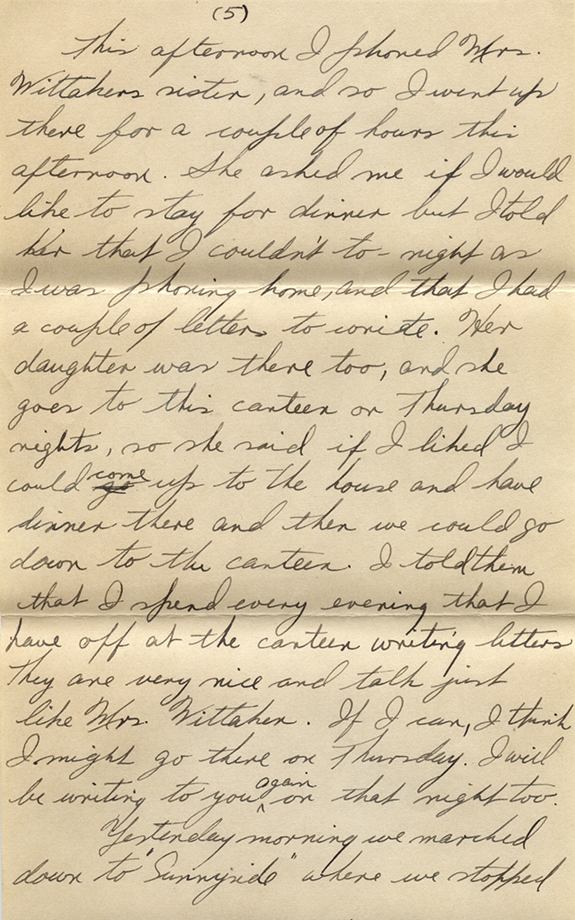 (5)
This afternoon I phoned Mrs.
Wittakers sister, and so I went up
there for a couple of hours this
afternoon. She asked me if I would
like to stay for dinner but I told
her that I couldn't to-night as
I was phoning home, and that I had
a couple of letters to write. Her
daughter was there too, and she
goes to this canteen on Thursday
nights, so she said if I liked I
could go come up to the house and have
dinner there and then we could go
down to the canteen. I told them
that I spend every evening that I
have off at the canteen writing letters
They are very nice and talk just
like Mrs. Wittaker. If I can, I think
I might go there on Thursday. I will
be writing to you again on that night too.
Yesterday morning we marched
down to "Sunnyside" where we stopped